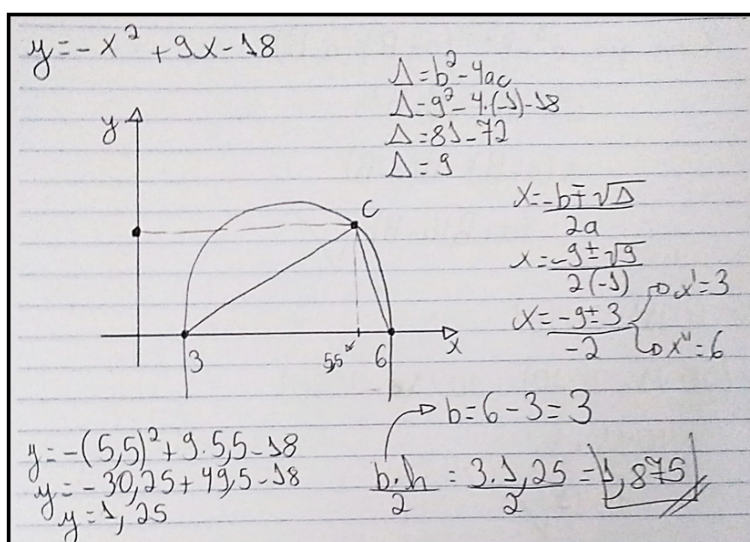 y = -x² + 9x - 18
Δ = b² - 4ac
Δ = 9² - 4·(-1)-18
Δ = 81 - 72
Δ = 9
y
C
3
5,5
6
x
x = -b ∓ √Δ / 2a
x = -9 ± √9 / 2(-1)
x = -9 ± 3 / -2
x' = 3
x" = 6
b = 6 - 3 = 3
y = -(5,5)² + 9·5,5 - 18
y = -30,25 + 49,5 - 18
y = 1,25
b·h / 2 = 3·1,25 / 2 = 1,875